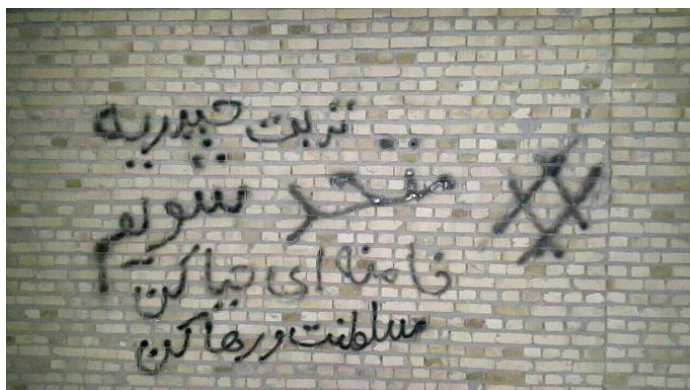 تربت حیدریه
# متحد شویم
خامنه ای حیا کن
سلطنت و رها کن